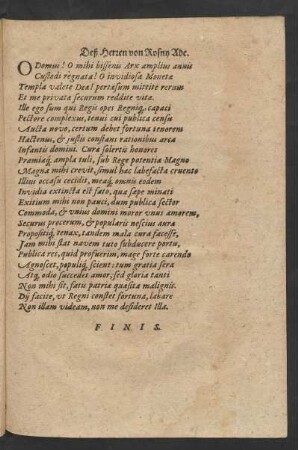 Deß Herren von Rosny Ade.
O Domus! O mihi bissenis Arx amplius annis
Custodi regnata! O invidiosa Moneta
Templa valete Dea! pertæsum mittite rerum
Et me privata securum reddite vita.
Ille ego sum qui Regis opes Regniq́; capaci
Pectore complexus, tenui cui publica censu
Aucta novo, certum debet fortuna tenorem
Hactenus, & justis constans rationibus arca
Infantis domini. Cura solertis honores
Præmiaq́; ampla tuli, sub Rege potentia Magno
Magna mihi crevit, simul hac labefacta cruento
Illius occasu cecidit, meaq́; omnis eodem
Invidia extincta est fato, qua sæpe minati
Exitium mihi non pauci, dum publica sector
Commoda, & unius domini moror unus amorem,
Securus procerum, & popularis nescius aura
Propositiq́; tenax, tandem mala cura facesse,
Jam mihi stat navem tuto subducere portu,
Publica res, quid profuerim, mage forte carendo
Agnoscet, populiq́; scient: tum gratia sera
Atq́; odio succedet amor, sed gloria tanti
Non mihi sit, fatis patria quæsita malignis.
Dij facite, ut Regni constet fortuna, labare
Non illam videam, non me desideret Illa.
FINIS.